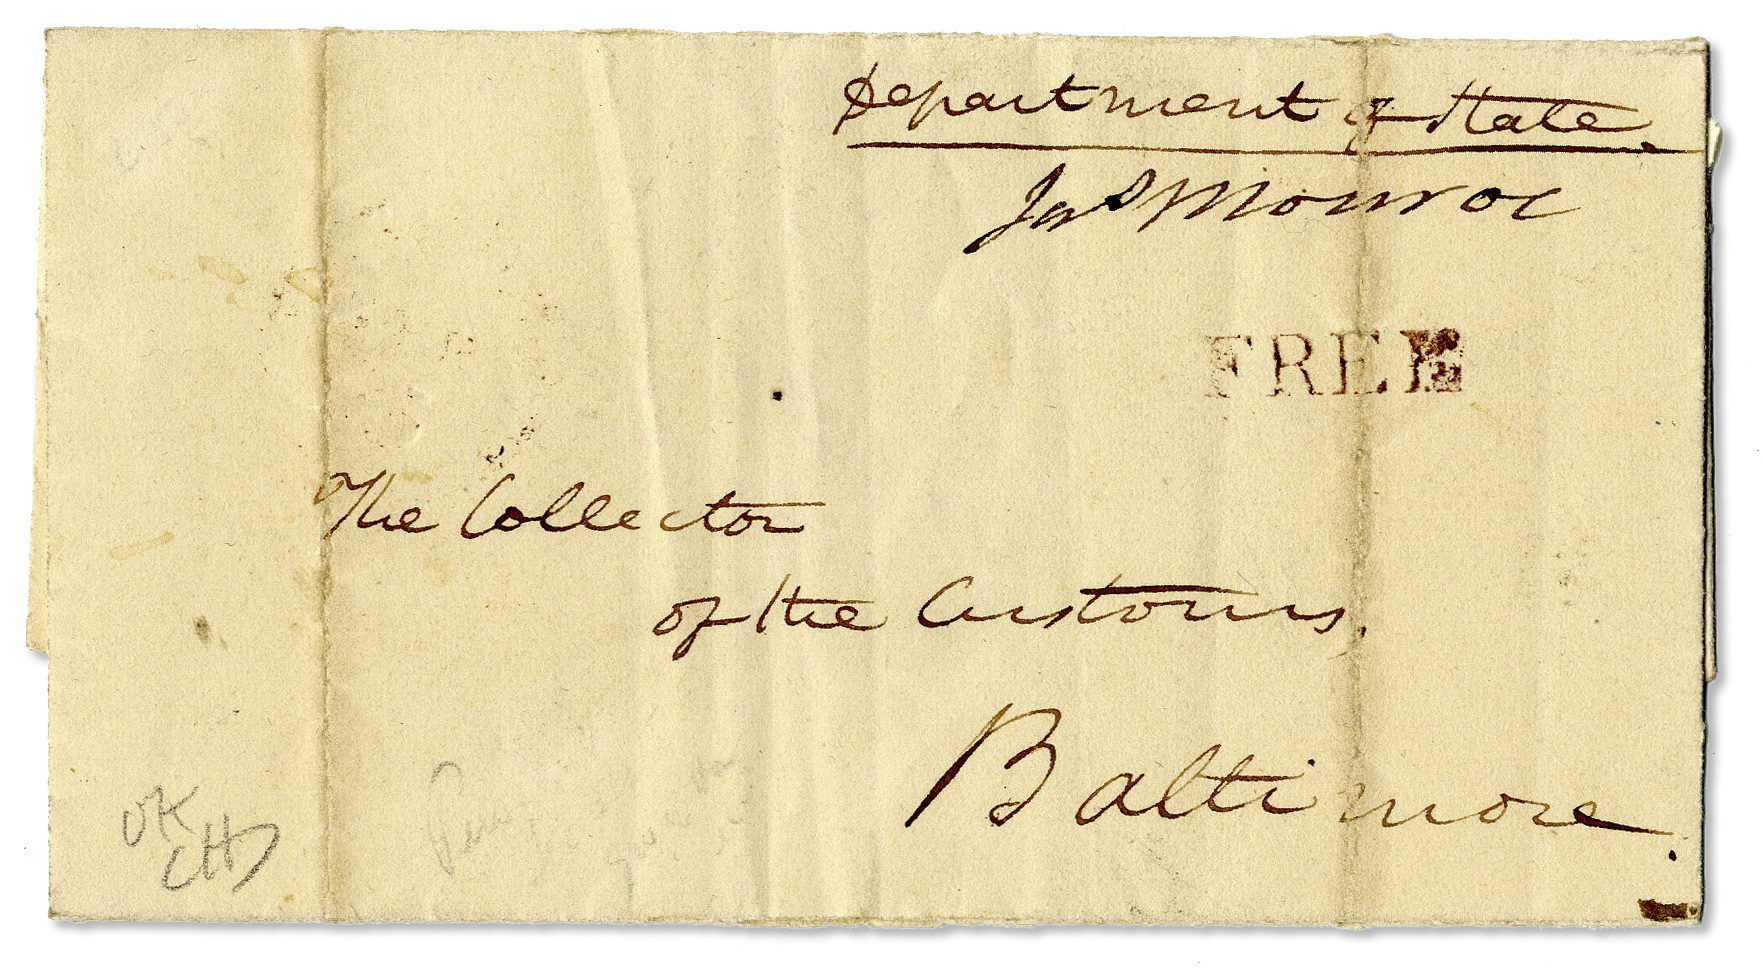 Department of State.
Jas Monroe
FREE
The Collector
of the Customs.
Baltimore.
OK
CH